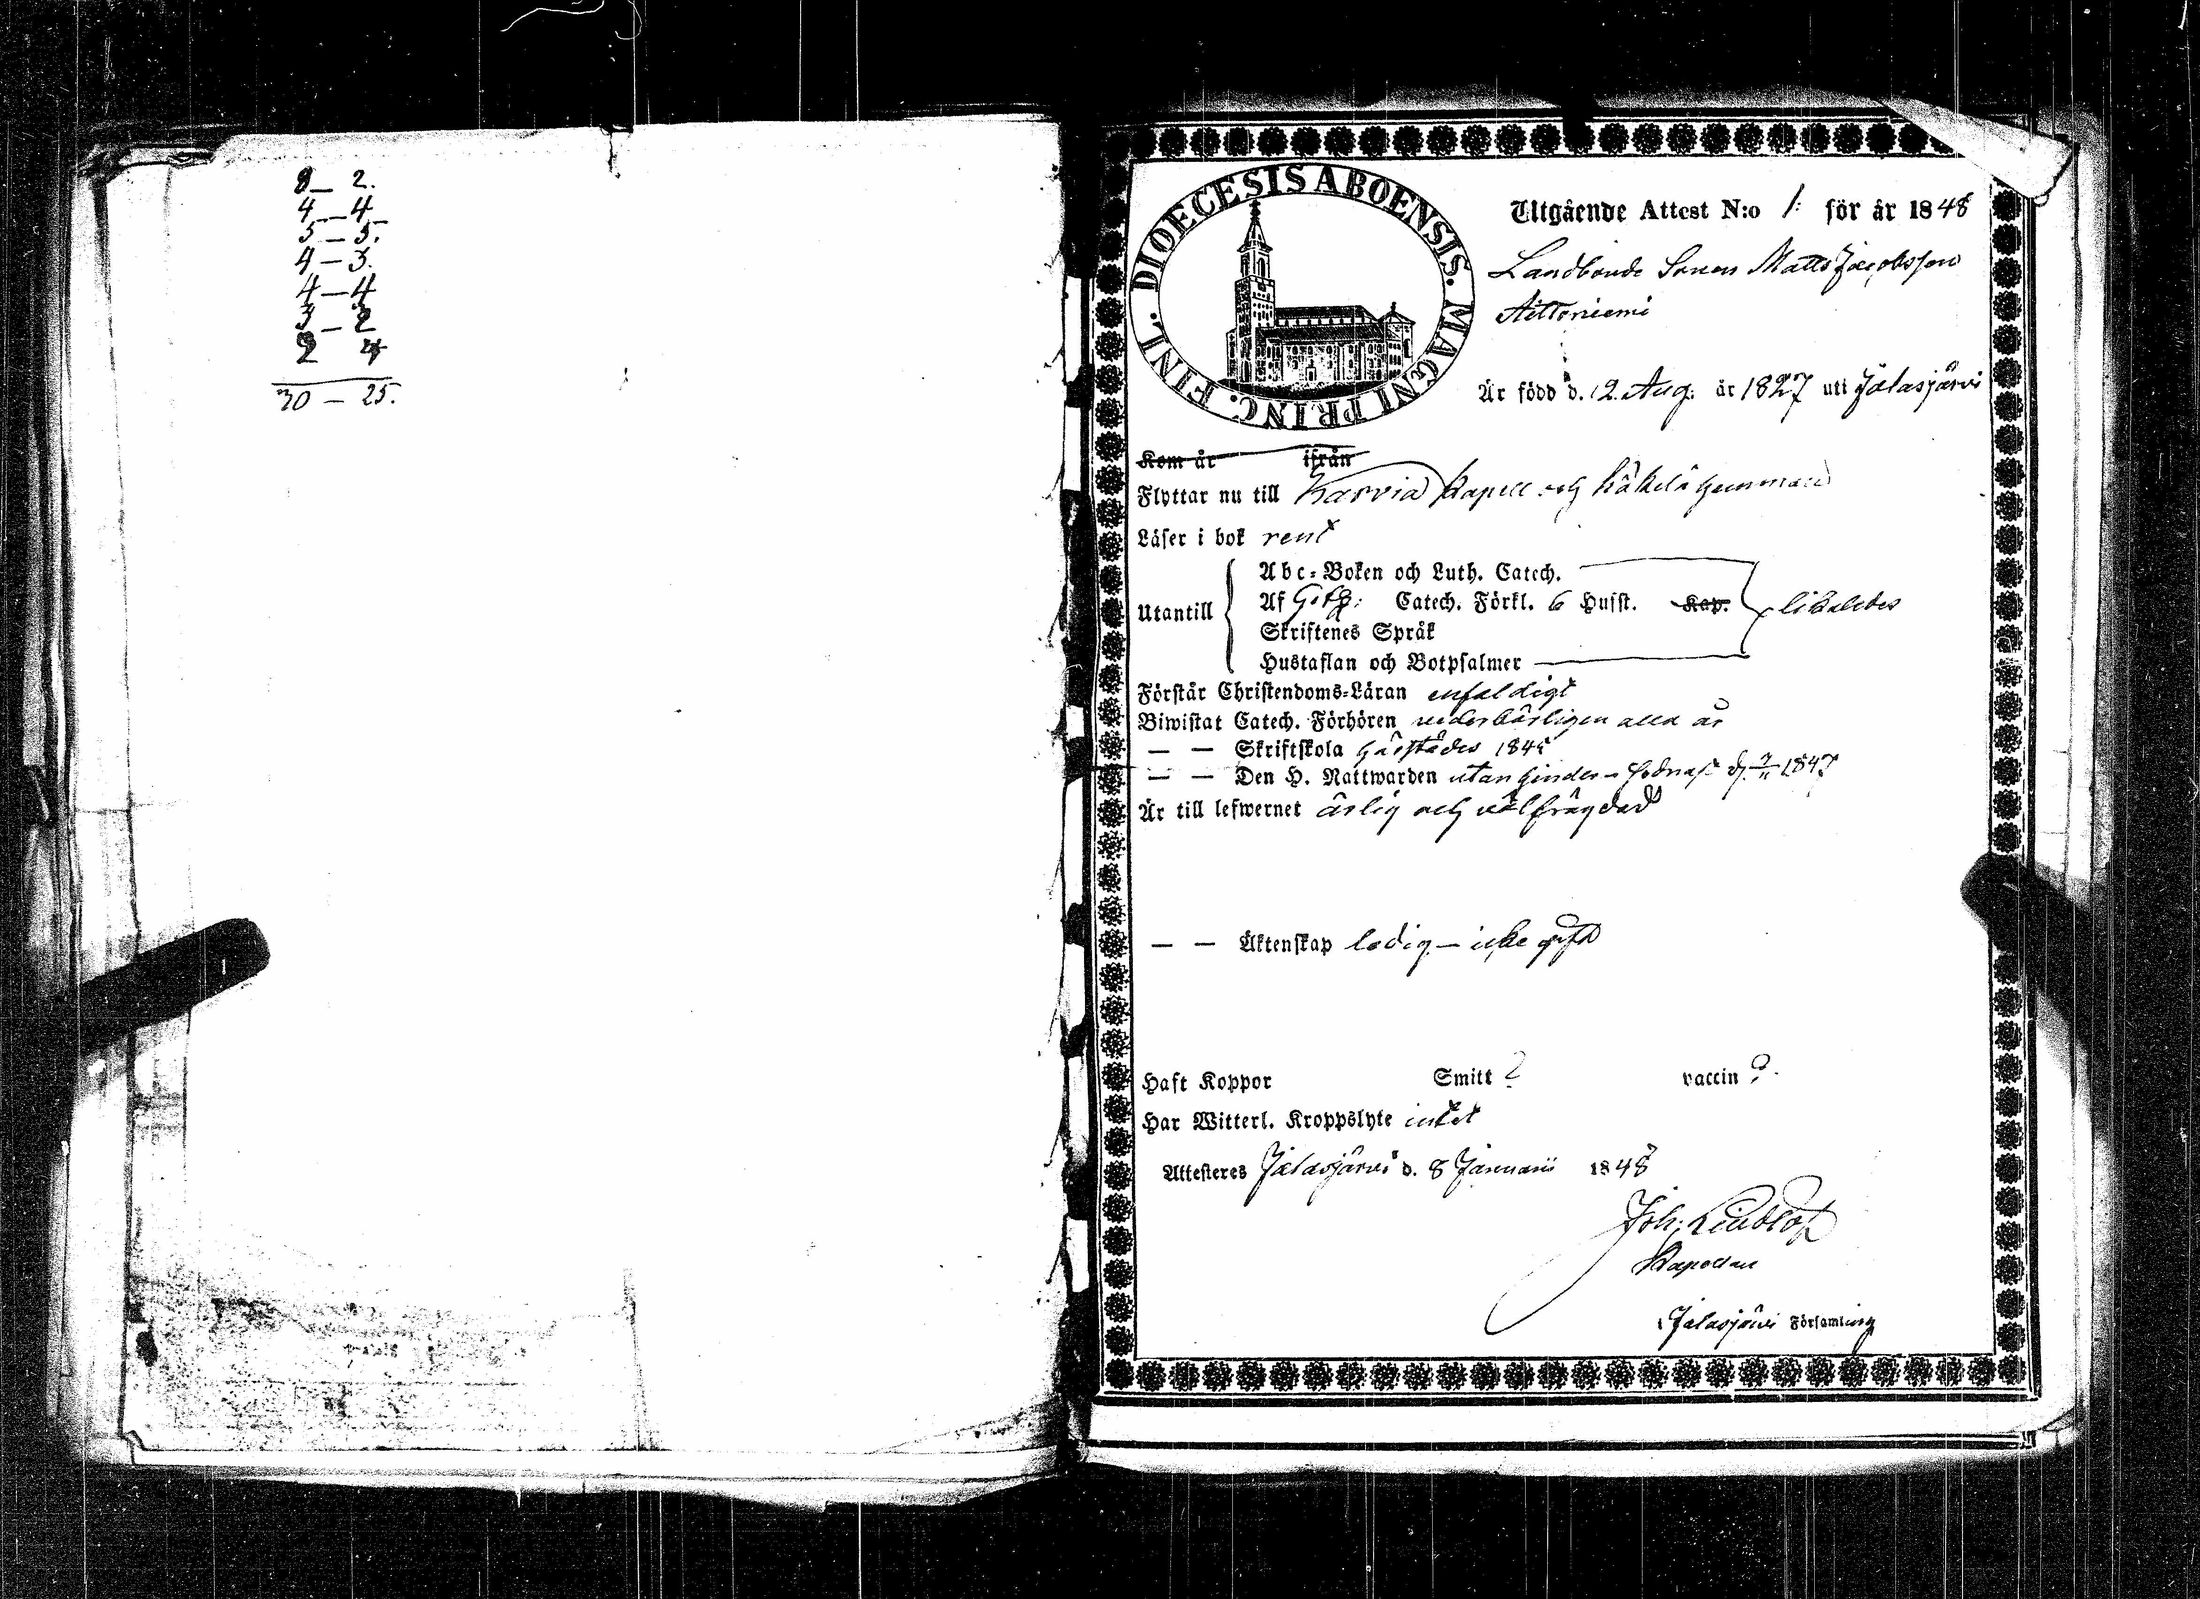 8 — 2.
4 — 4
5 — 5.
4 — 3.
4 — 4
3 — 2
2 4
30 — 25.
DIOECESIS ABOENSIS. MAGNI PRINC. FINL.
Utgående Attest N:o 1: för år 1848
Landbonde Sonen Matts Jacobsson
Aittoniemi
Är född d. 12 Aug. år 1827 uti Jalasjärvi
Kom år ifrån
Flyttar nu till Karvia Kapell och Häkelä hemman
Läser i bok rent
Utantill
Abc-Boken och Luth. Catech.
Af Goth: Catech. Förkl. 6 Hufst. Kap. likaledes
Skriftenes Språk
Hustaflan och Botpsalmer
Förstår Christendoms-Läran enfaldigt
Biwistat Catech. Förhören vederbörligen alla år
— — Skriftskola härstädes
— — Den H. Nattwarden utan hinder 1847
Är till lefwernet ärlig och välfrägdad
— — Äktenskap ledig — icke gift
Haft Koppor Smitt ? vaccin ?
Har Witterl. Kroppslyte intet
Attesteres Jalasjärvi d. 8 Januarii 1848
Joh: Lindlöf
Kapellan
i Jalasjärvi Församling